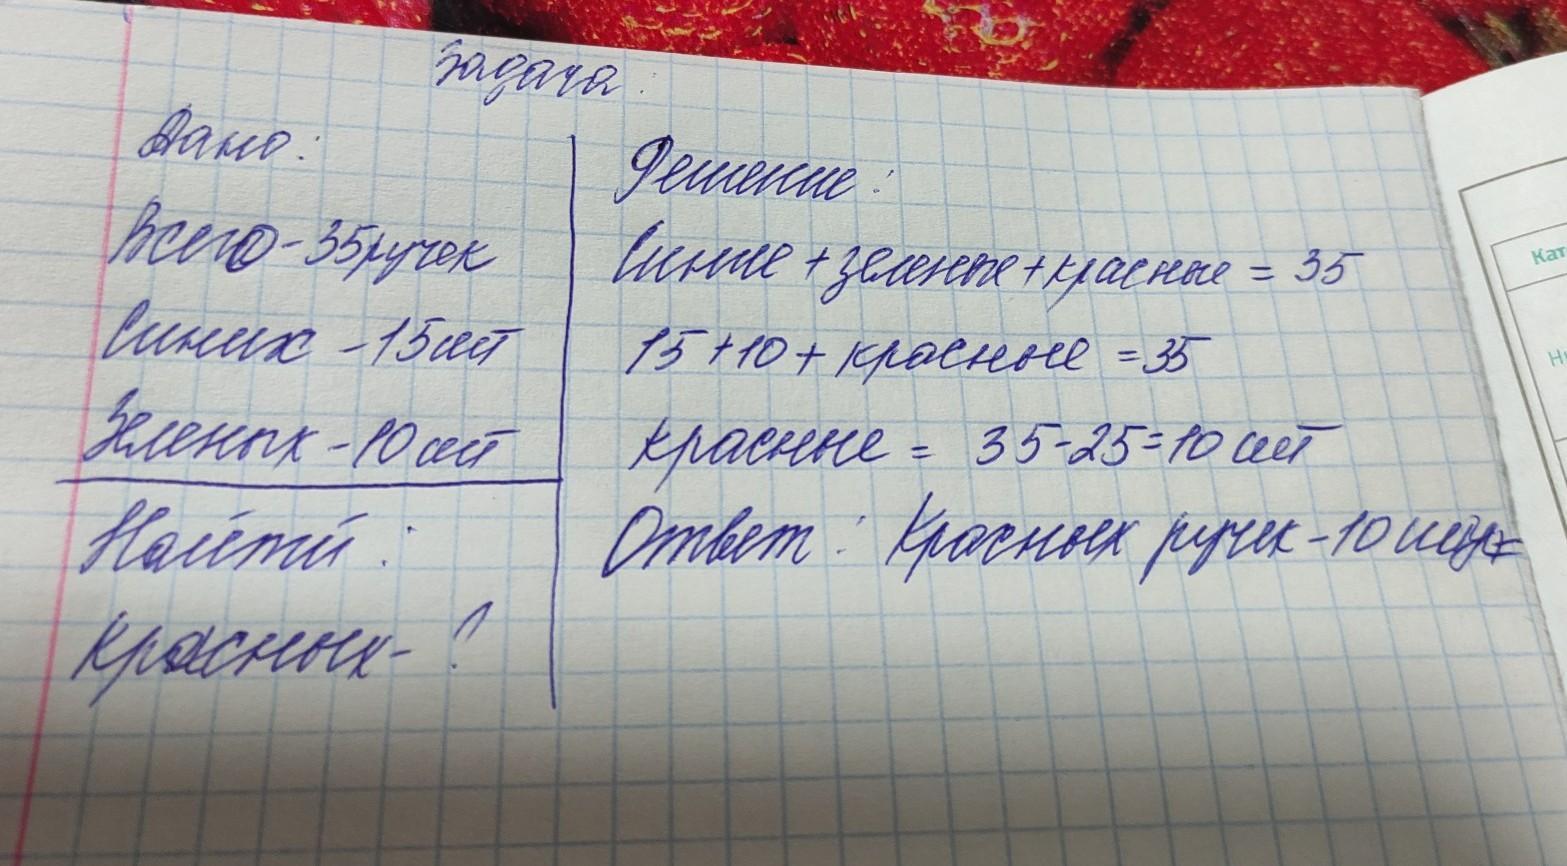 Задача:
Дано:
Всего - 35 ручек
Синих - 15 шт
Зеленых - 10 шт
Найти:
Красных - ?
Решение:
Синие + зеленые + красные = 35
15 + 10 + красные = 35
красные = 35 - 25 = 10 шт
Ответ: Красных ручек - 10 штук
Кат